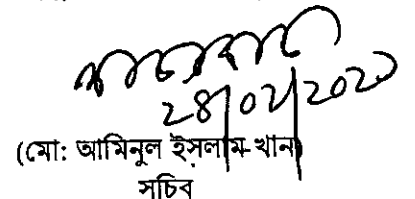 28/02/202
(মো: আমিনুল ইসলাম খান)
সচিব